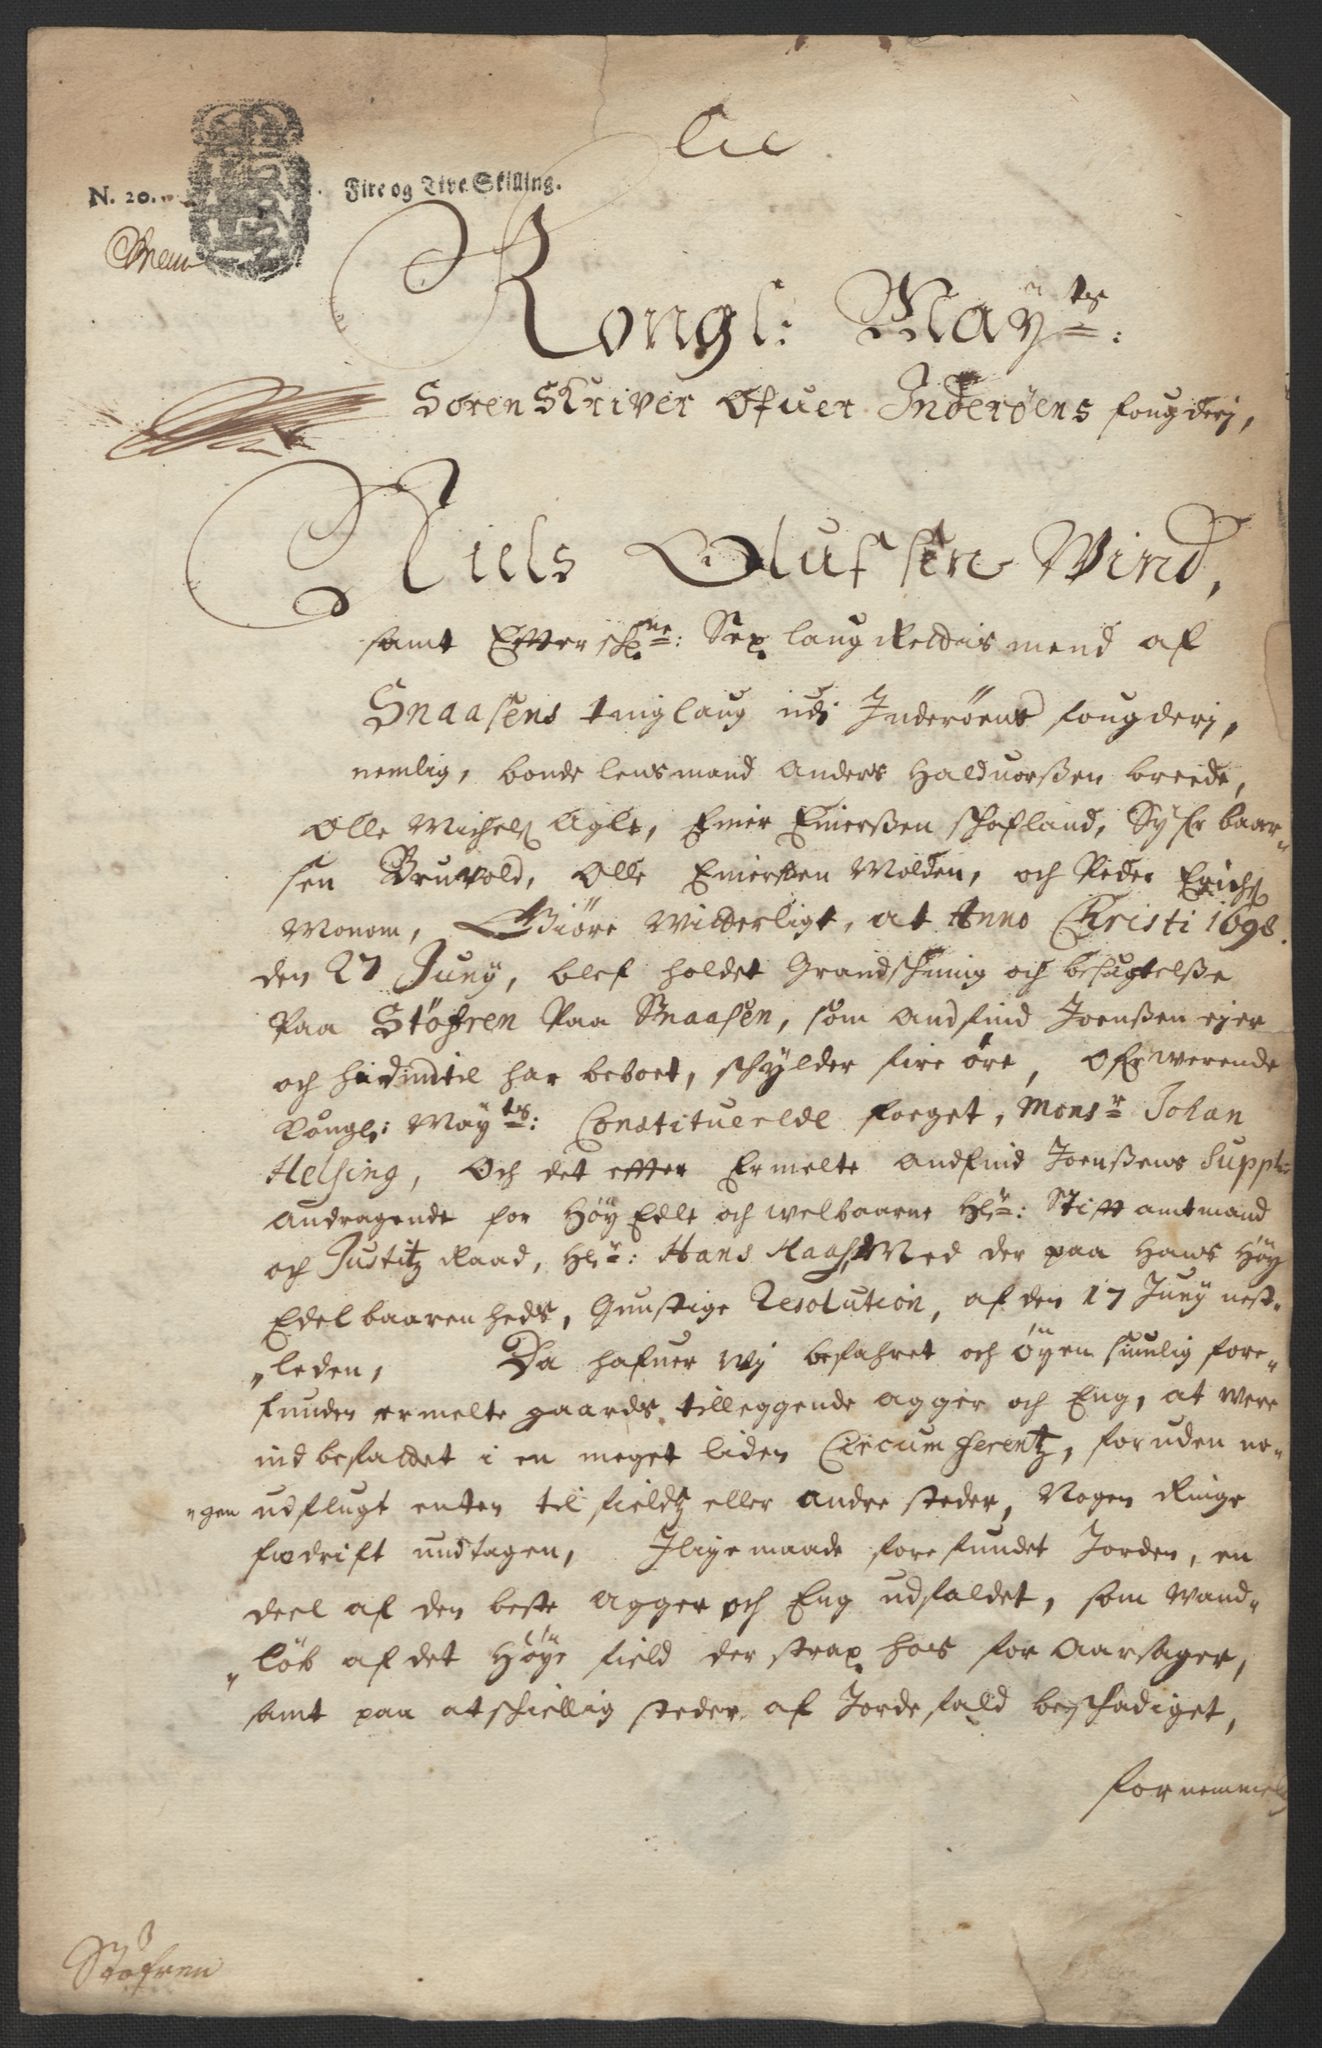 N. 20. Fire og Tive Skilling.
Kongl: Mayts:
Soren Skriver Ofuer Inderøens fougderj,
Niels Olufsen Wind,
samt Effterschne: Sex laug Rettis mend af
Snaasens tinglaug udj Inderøens fougderj,
nemlig, bonde lensmand Anders Halduorßen breede,
Olle Michels Agle, Einer Einerßen schofland, Syfr baar"
sen Bruvold, Olle Einerßen Molden, och Peder Erichs
Monom, Giöre Witterligt, at Anno Christi 1698.
den 27 Junÿ, blef holdet Grandschning och besugtelße
Paa Stöfren Paa Snaasen, som Andfind Joenßen ejer
och hidindtil har beboet, schÿlder fire öre, Ofrwerende
Kongl: Mayts: Constituerede foeget, Monsr Johan
Helsing, Och det effter Ermelte Andfind Joenßens Suppl:
Andragende for HöyEdle och welbaarne Hr: Stifftamtmand
och Justitz Raad, Hr: Hans Kaas, Med der paa Hans Höy
Edelbaarenheds, Gunstige Resolution, af den 17 Junÿ nest"
"leden, Da hafuer Wj befahret och öyensiunlig fore"
funden ermelte gaards tilleggende agger och Eng, at were
indbefattet i en meget liden Circumferentz, foruden no"
"gen udflugt enten til fieldtz eller andre steder, Nogen Ringe
fædrift undtagen, Jlige maade forefundet Jorden, en
deel af den beste Agger och Eng udfaldet, som Wand"
"löb af det Höye field der strax hos for Aarsager,
samt paa atschiellig steder af Jordefald beschadiget,
fornemmelig
Stöfren